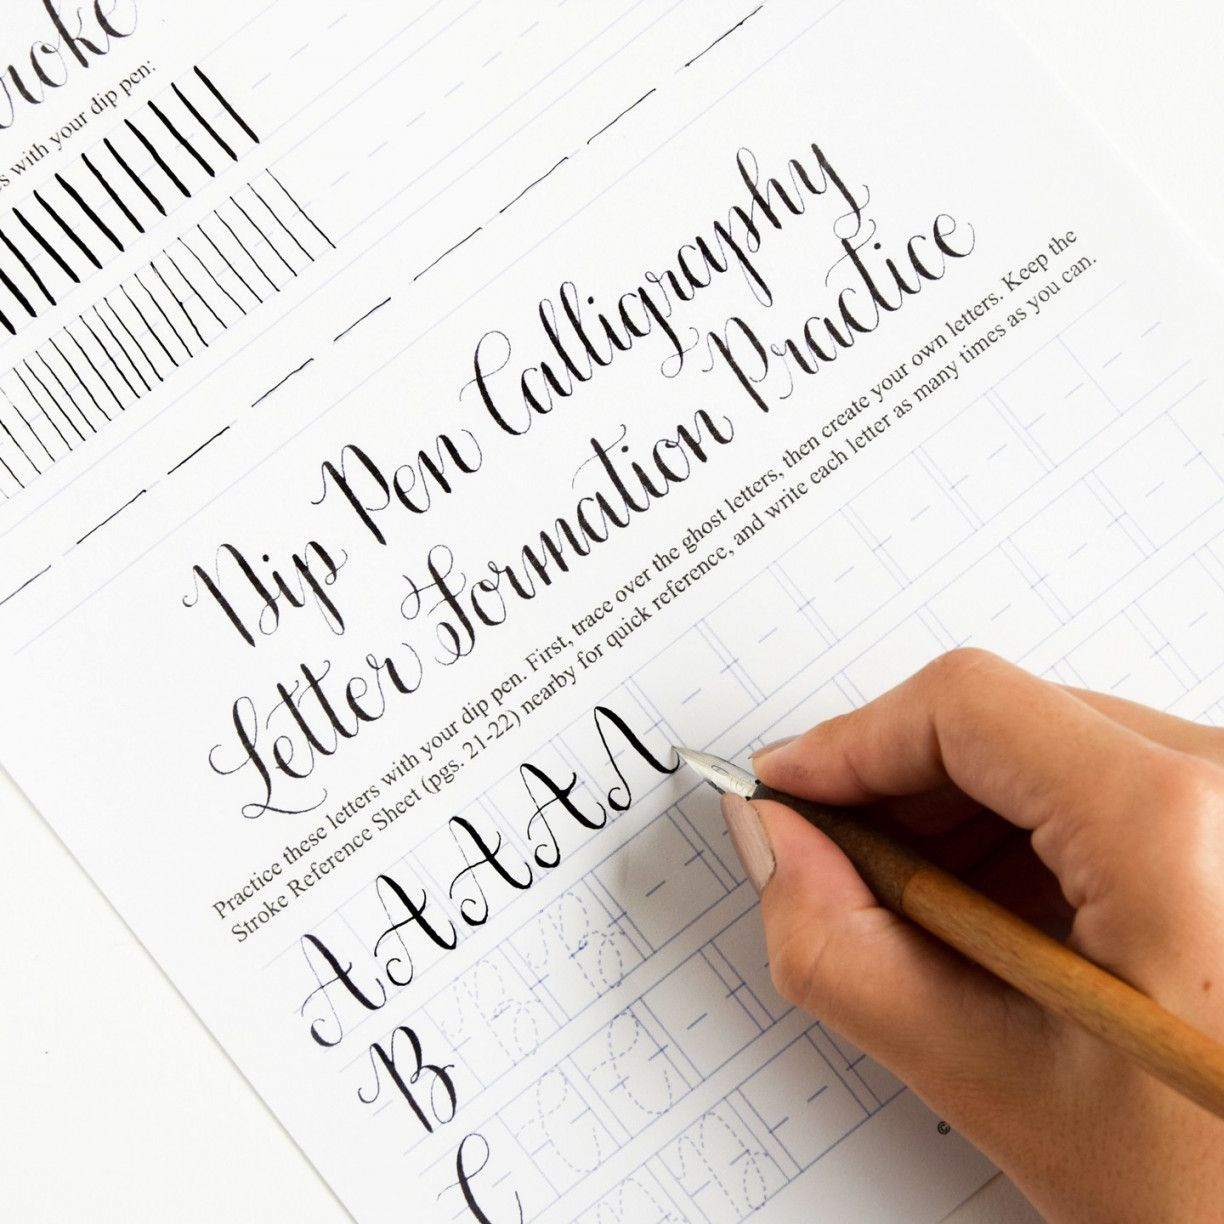 roke
s with your dip pen:
Dip Pen Calligraphy
Letter Formation Practice
Practice these letters with your dip pen. First, trace over the ghost letters, then create your own letters. Keep the
Stroke Reference Sheet (pgs. 21-22) nearby for quick reference, and write each letter as many times as you can.
A A A A A
B B B
C C C
©